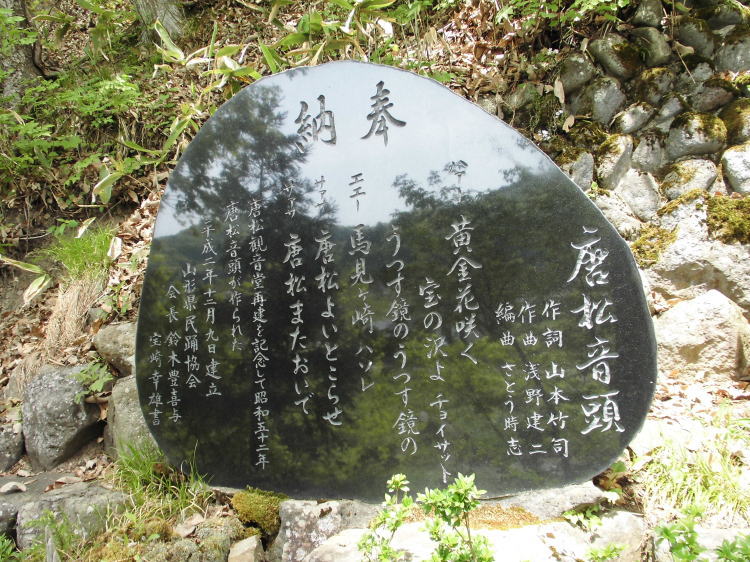 奉納
唐松音頭
作詞 山本竹司
作曲 浅野建二
編曲 さとう時志
ハアー 黄金花咲く
宝の沢よ チョイサット
うつす鏡のうつす鏡の
エエー 馬見ヶ崎 ハソレ
サアサ 唐松よいとこらせ
サーサ 唐松またおいで
唐松観音堂再建を記念して昭和五十二年
唐松音頭が作られた
平成二年十二月九日建立
山形県民踊協会
会長 鈴木豊喜与
宝崎幸雄書